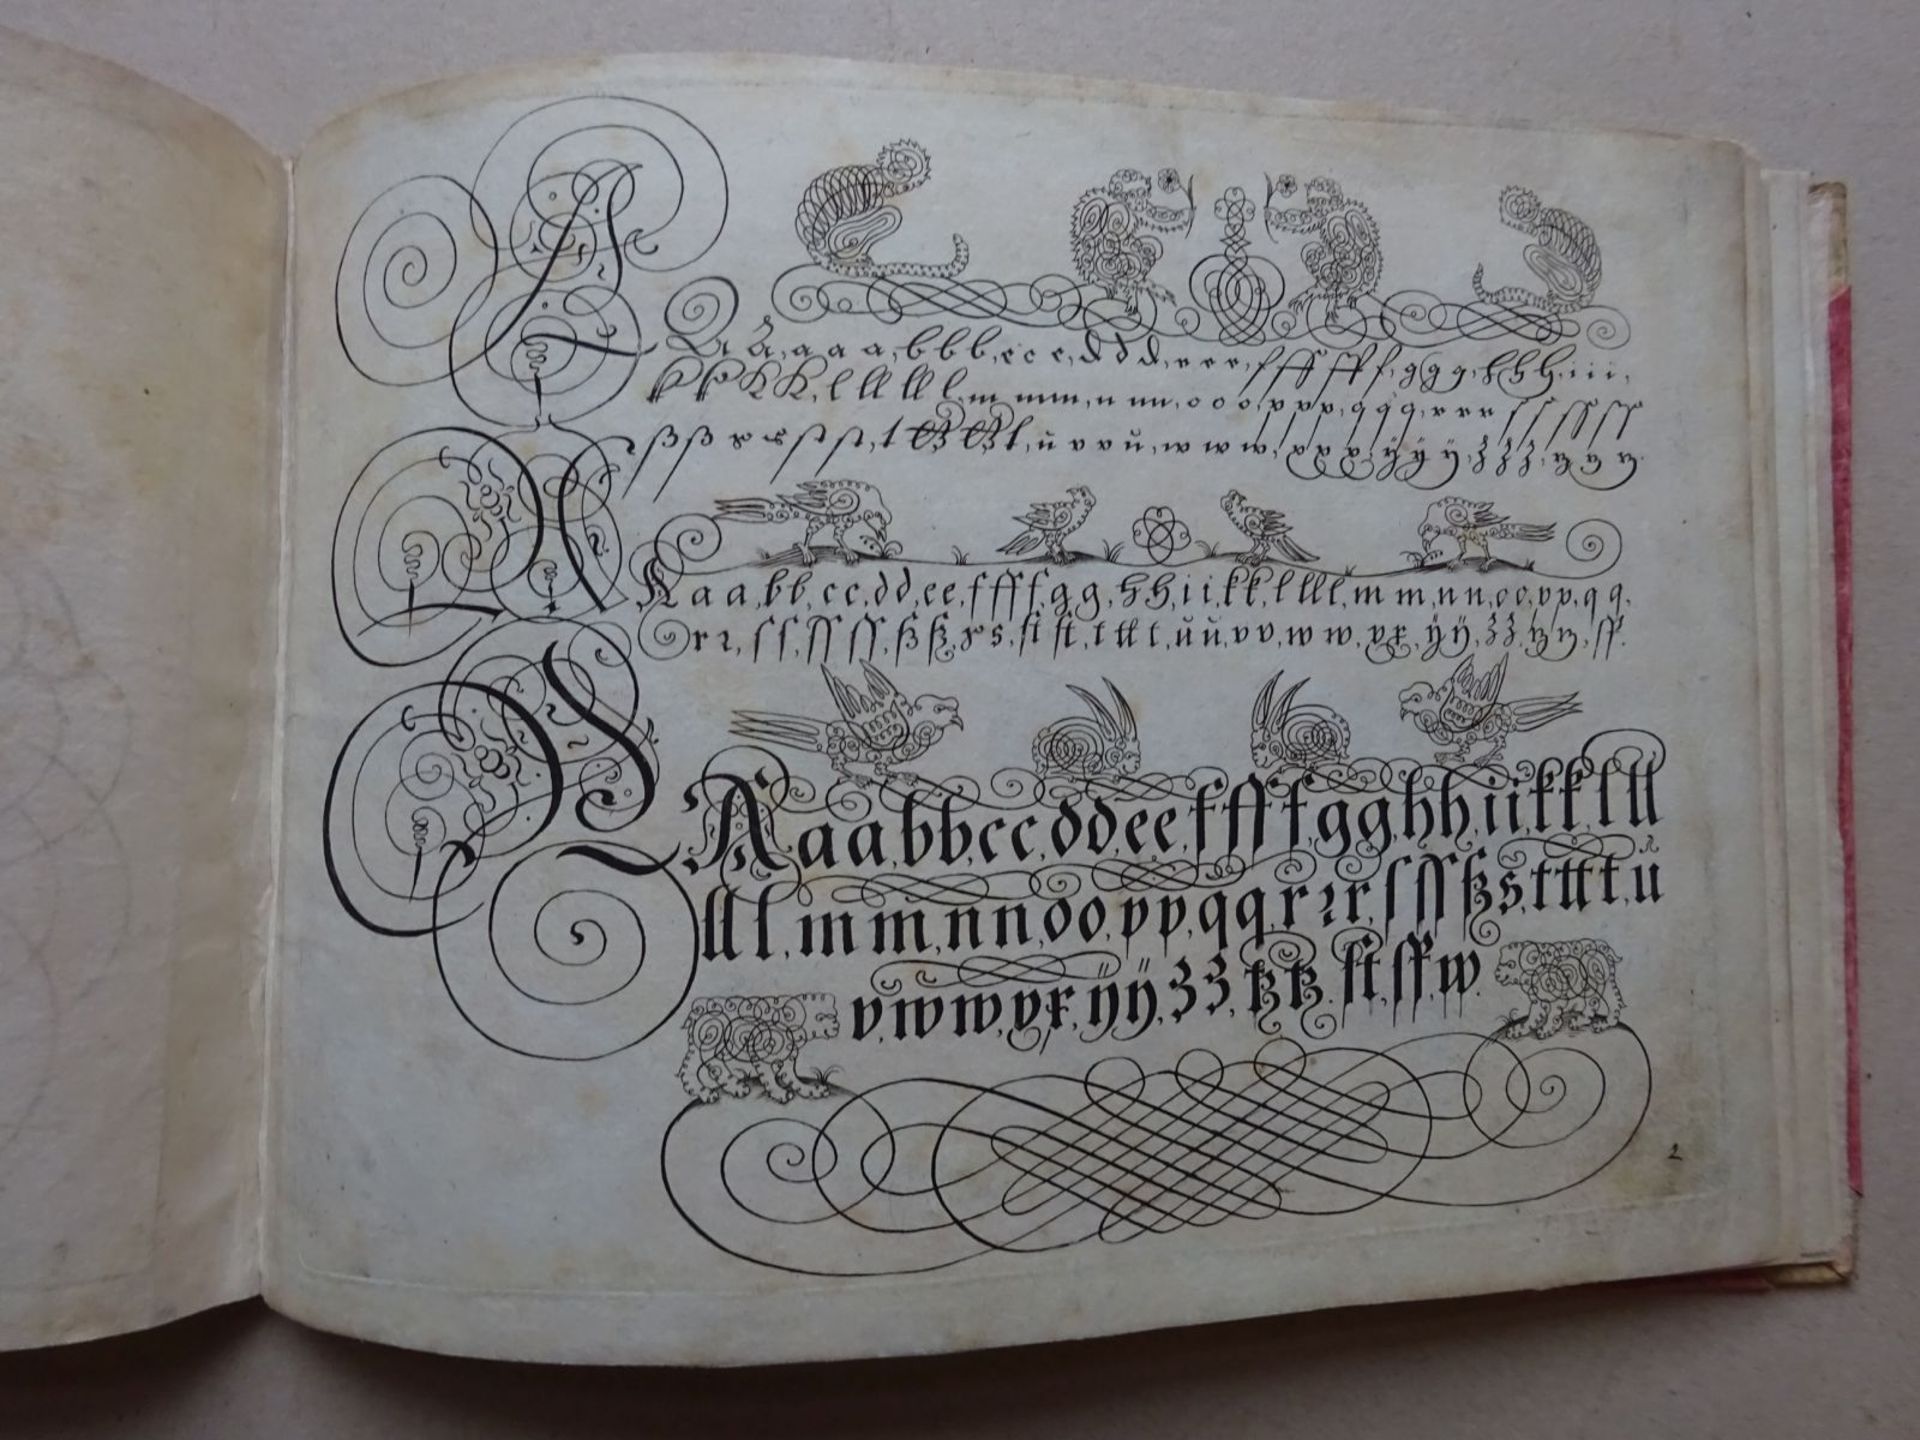 A
A a, a a a, b b b, c c c, d d d, e e e, f ff ff f, g g g, h h h, i i i,
k k k k, l ll ll l, m mm, n nn, o o o, p p p, q q q, r r r ſ ſ ſſ ſſ
A
ß ß s s st st, t tz tz t, ü v v ü, w w w, x x x, ÿ ÿ ÿ, z z z, tz tz tz.
A a a, b b, c c, d d, e e, f ff f, g g, h h, i i, k k, l ll l, m m, n n, o o, p p, q q,
r r, ſ ſ, ſſ ſſ, ß ß, s s, ſt ſt, t tt t, ü ü, v v, w w, x x, ÿ ÿ, z z, tz tz, ſſ.
A
A a a, b b, c c, d d, e e, f ff f, g g, h h, i i, k k, l ll
ll l, m m, n n, o o, p p, q q, r r r, ſ ſſ ß s, t tt t, ü
v, w w, x x, ÿ ÿ, z z, tz tz, ſt, ſſ, w.
2